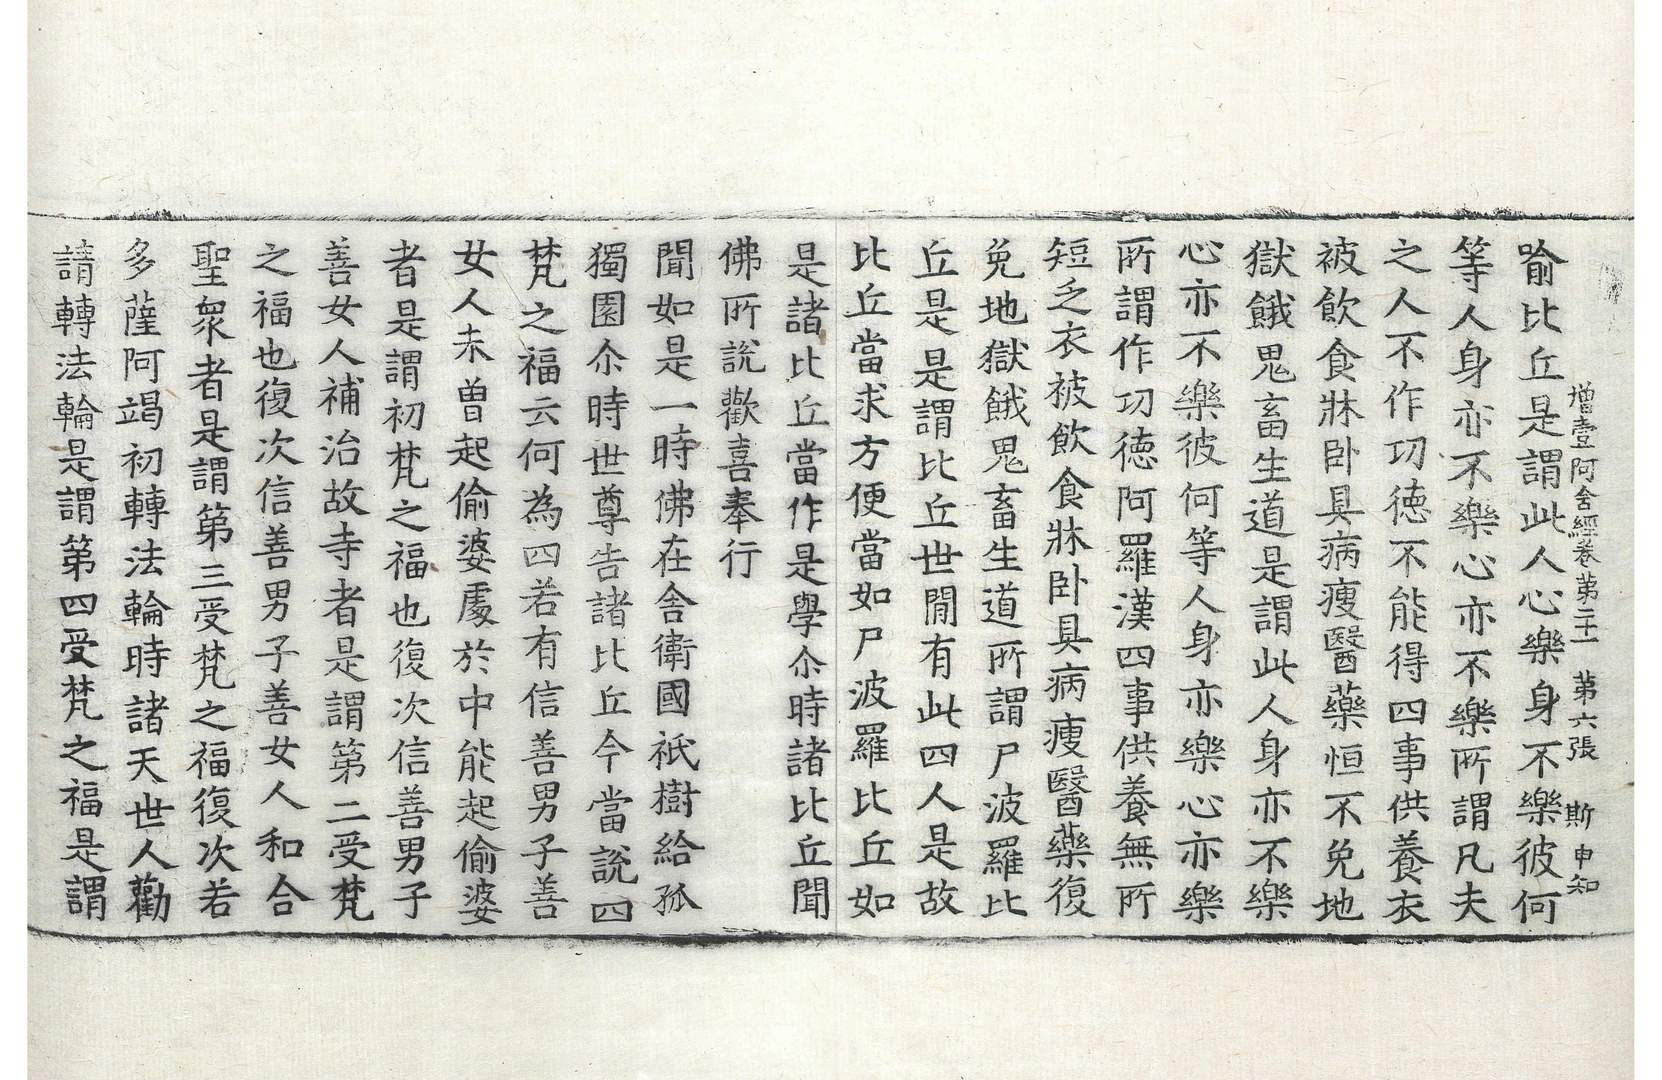 增壹阿含經卷第二十一 第六張 斯 申知
喻比丘是謂此人心樂身不樂彼何
等人身亦不樂心亦不樂所謂凡夫
之人不作功徳不能得四事供養衣
被飲食牀卧具病瘦醫藥恒不免地
獄餓鬼畜生道是謂此人身亦不樂
心亦不樂彼何等人身亦樂心亦樂
所謂作功徳阿羅漢四事供養無所
短乏衣被飲食牀卧具病瘦醫藥復
免地獄餓鬼畜生道所謂尸波羅比
丘是是謂比丘世閒有此四人是故
比丘當求方便當如尸波羅比丘如
是諸比丘當作是學尒時諸比丘聞
佛所說歡喜奉行
聞如是一時佛在舍衛國祇樹給孤
獨園尒時世尊告諸比丘今當說四
梵之福云何為四若有信善男子善
女人未曾起偷婆處於中能起偷婆
者是謂初梵之福也復次信善男子
善女人補治故寺者是謂第二受梵
之福也復次信善男子善女人和合
聖衆者是謂第三受梵之福復次若
多薩阿竭初轉法輪時諸天世人勸
請轉法輪是謂第四受梵之福是謂